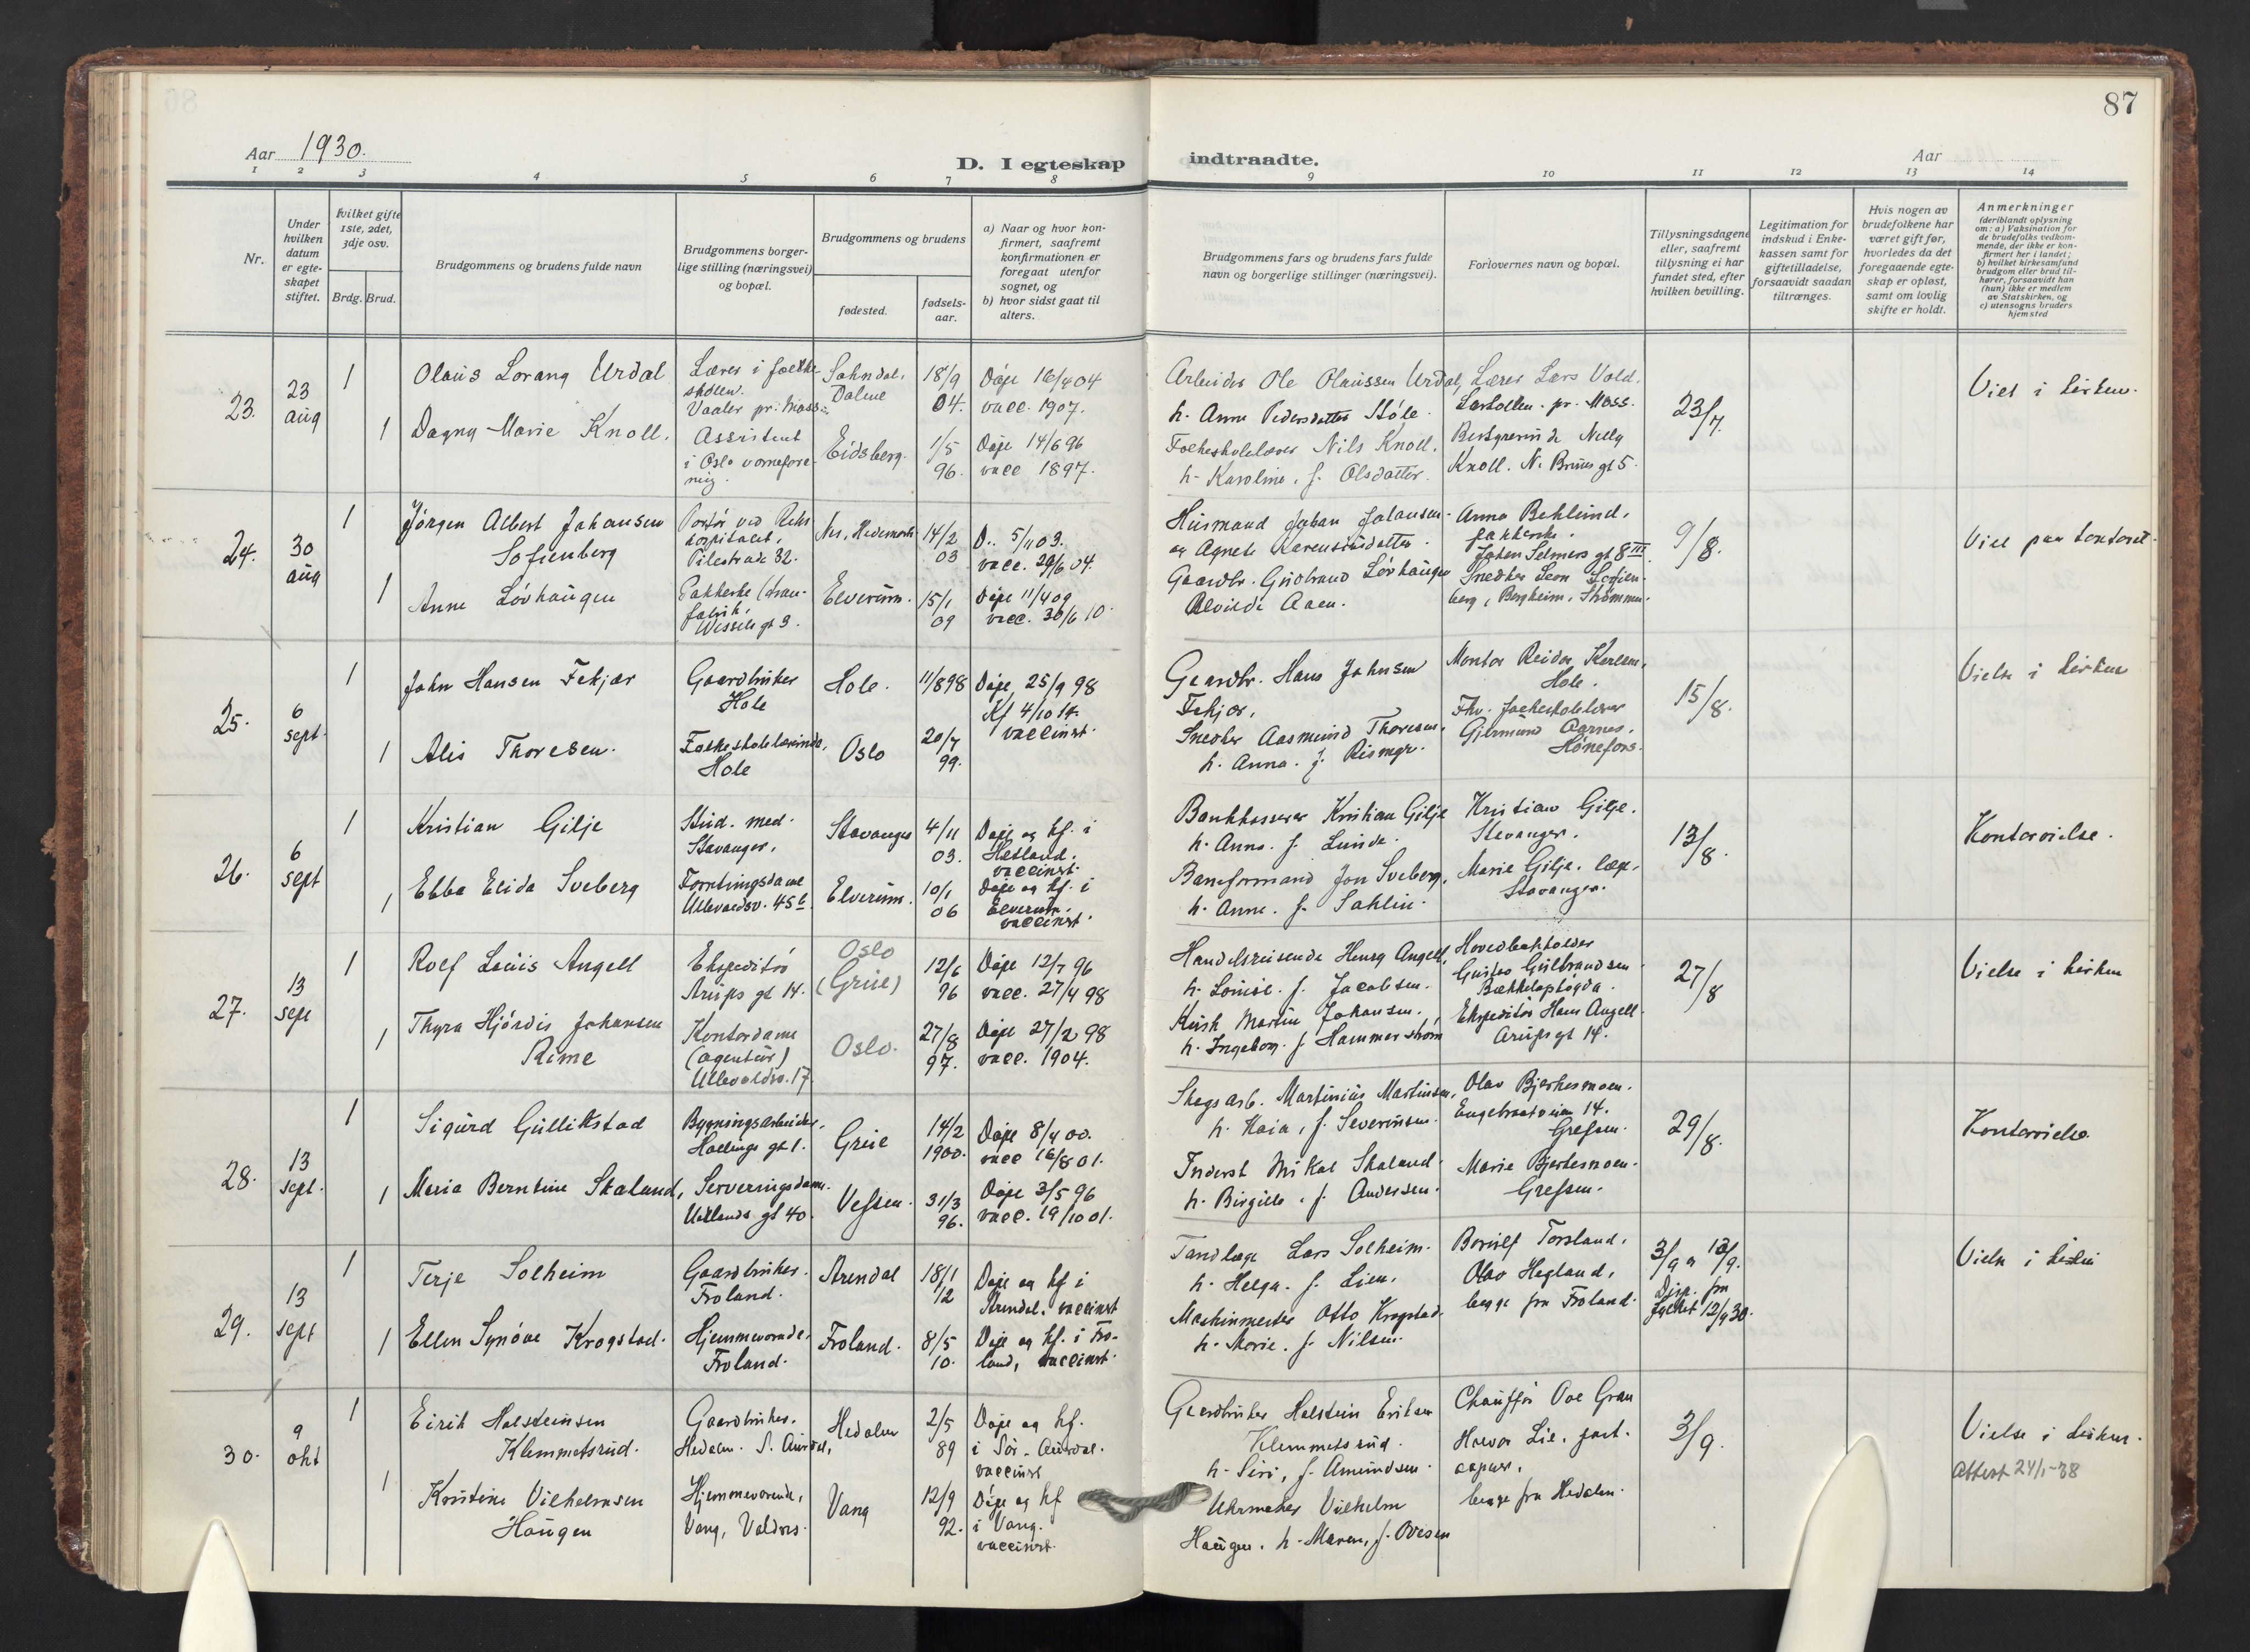 87
Aar 1930.
D. I egteskap indtraadte.
Aar
1 2 3 4 5 6 7 8 9 10 11 12 13 14
Nr.
Under hvilken datum er egteskapet stiftet.
Hvilket gifte 1ste, 2det, 3dje osv.
Brdg. Brud.
Brudgommens og brudens fulde navn
Brudgommens borgerlige stilling (næringsvei) og bopæl.
Brudgommens og brudens
fødested.
fødselsaar.
a) Naar og hvor konfirmert, saafremt konfirmationen er foregaat utenfor sognet, og
b) hvor sidst gaat til alters.
Brudgommens fars og brudens fars fulde navn og borgerlige stillinger (næringsvei).
Forlovernes navn og bopæl.
Tillysningsdagene eller, saafremt tillysning ei har fundet sted, efter hvilken bevilling.
Legitimation for indskud i Enkekassen samt for giftetilladelse, forsaavidt saadan tiltrænges.
Hvis nogen av brudefolkene har været gift før, hvorledes da det foregaaende egteskap er opløst, samt om lovlig skifte er holdt.
Anmerkninger
(deriblandt oplysning om: a) Vaksination for de brudefolks vedkommende, der ikke er konfirmert her i landet; b) hvilket kirkesamfund brudgom eller brud tilhører, forsaavidt han (hun) ikke er medlem av Statskirken, og c) utensogns bruders hjemsted
23.
23 aug
1
Olaus Lorang Urdal
Lærer i folkeskolen.
Vaaler pr. Moss.
18/9
04.
Døpt 16/4 04
vacc. 1907.
Arbeider Ole Olaussen Urdal,
h. Anne Pedersdatter Støle.
Lærer Lars Vold.
pr. Moss.
23/7.
Viet i kirken.
1
Dagny Marie Knoll.
Assistent
i Oslo
Eidsberg.
1/5
96.
Døpt 14/6 96
vacc 1897.
Folkeskolelærer Nils Knoll.
h. Karoline, f. Olsdatter.
Nelly
Knoll. N. Bruns gt 5.
24.
30 aug
1
Jørgen Albert Johansen
Sofienberg
Portør ved Rikshospitalet,
Pilestræde 32.
Nes, Hedemark
14/2
03
D. 5/11 03.
vacc. 29/6 04.
Husmand Johan Johansen
og Agnete
Anna
Johan Selmers gt 8 III
9/8.
Viet paa kontoret.
1
Anne Løvhaugen
Pakkerske
Wessels gt 3.
Elverum.
15/1
09
Døpt 11/4 09
vacc. 30/6 10.
Gaardbr. Gudbrand Løvhaugen
Alvilde Aaen.
Snedker Leon Sofienberg, Bergheim, Strømmen.
25.
6 sept.
1
John Hansen Fekjær
Gaardbruker
Hole
Hole.
11/8 98
Døpt 25/9 98
Kf 4/10 14.
vaccinert.
Gaardbr. Hans Johnsen
Fekjær,
Montør Reidar Karlsen,
Hole.
15/8.
Vielse i kirken
1
Alis Thoresen.
Folkeskolelærerinde,
Hole
Oslo
20/7
99.
Snedker Aasmund Thoresen,
h. Anna. f.
Fhv. folkeskolelærer
Aarnes,
Hønefoss.
26.
6 sept
1
Kristian Gilje
Stud. med.
Stavanger,
Stavanger
4/11
03.
Døpt og kf. i
Hetland.
vaccinert.
Bankkasserer Kristian Gilje
h. Anna. f. Lunde.
Kristian Gilje.
Stavanger.
13/8.
Kontorvielse.
1
Ebba Elida Sveberg
Forretningsdame
Ullevaalsv. 45 b.
Elverum.
10/1
06
Døpt og kf. i
Elverum.
vaccinert.
Baneformand Jon Sveberg,
h. Anne. f. Sahlin.
Marie Gilje, læge,
Stavanger.
27.
13 sept
1
Rolf Louis Angell
Ekspeditør
Arups gt 14.
Oslo
(Grue)
12/6
96
Døpt 12/7 96
vacc. 27/4 98
Handelsreisende Henry Angell,
h. Louise. f. Jacobsen.
Hovedbokholder
Gustav Gulbrandsen
Bækkelagshøgda.
27/8
Vielse i kirken
1
Thyra Hjørdis Johansen
Rime
Kontordame
(agentur)
Ullevaalsv. 17.
Oslo.
27/8
97.
Døpt 27/2 98
vacc. 1904.
Kusk Martin Johansen,
h. Ingeborg. f. Hammerstrøm
Ekspeditør Hans Angell
Arups gt 14.
28.
13 sept.
1
Sigurd Gullikstad
Bygningsarbeider,
Hallings gt 1.
Grue
14/2
1900.
Døpt 8/4 00.
vacc 16/8 01.
Skogsarb. Martinius Martinsen,
h. Kaia, f. Severinsen.
Olav Bjerkesmoen.
14.
Grefsen.
29/8.
Kontorvielse.
1
Maria Berntine Skaland,
Serveringsdame.
Uelands gt 40.
Vefsen.
31/3
96.
Døpt 3/5 96
vacc. 19/10 01.
Inderst Mikal Skaland.
h. Birgitte. f. Andersen.
Marie Bjerkesmoen.
Grefsen.
29.
13 sept
1
Terje Solheim
Gaardbruker.
Froland.
Arendal
18/1
12
Døpt og kf i
Arendal. vaccinert
Tandlæge Lars Solheim.
h. Helga. f. Lien.
Torsland,
Olav Hegland,
begge fra Froland.
3/9 og 12/9.
Disp. fra
fylket 12/9 30.
Vielse i kirken
1
Ellen Synøve Krogstad.
Hjemmeværende,
Froland.
Froland.
8/5
10.
Døpt og kf. i Froland, vaccinert.
Maskinmester Otto Krogstad.
h. Marie. f. Nilsen.
30.
9 okt
1
Eirik Halsteinsen
Klemmetsrud.
Gaardbruker.
Hedalen. S. Aurdal,
Hedalen
2/5
89
Døpt og kf.
i Sør-Aurdal.
vaccinert
Gaardbruker Halstein Eriksen
Klemmetsrud.
h. Siri, f. Amundsen.
Chauffør Ove Grøn
Lie,
begge fra Hedalen.
3/9.
Vielse i kirken.
attest 24/1-38
1
Kristine Vilhelmsen
Haugen
Hjemmeværende,
Vang, Valdres.
Vang
12/9
92.
Døpt og kf
i Vang.
vaccinert.
Uhrmaker Vilhelm
Haugen. h. Maren, f. Ovesen